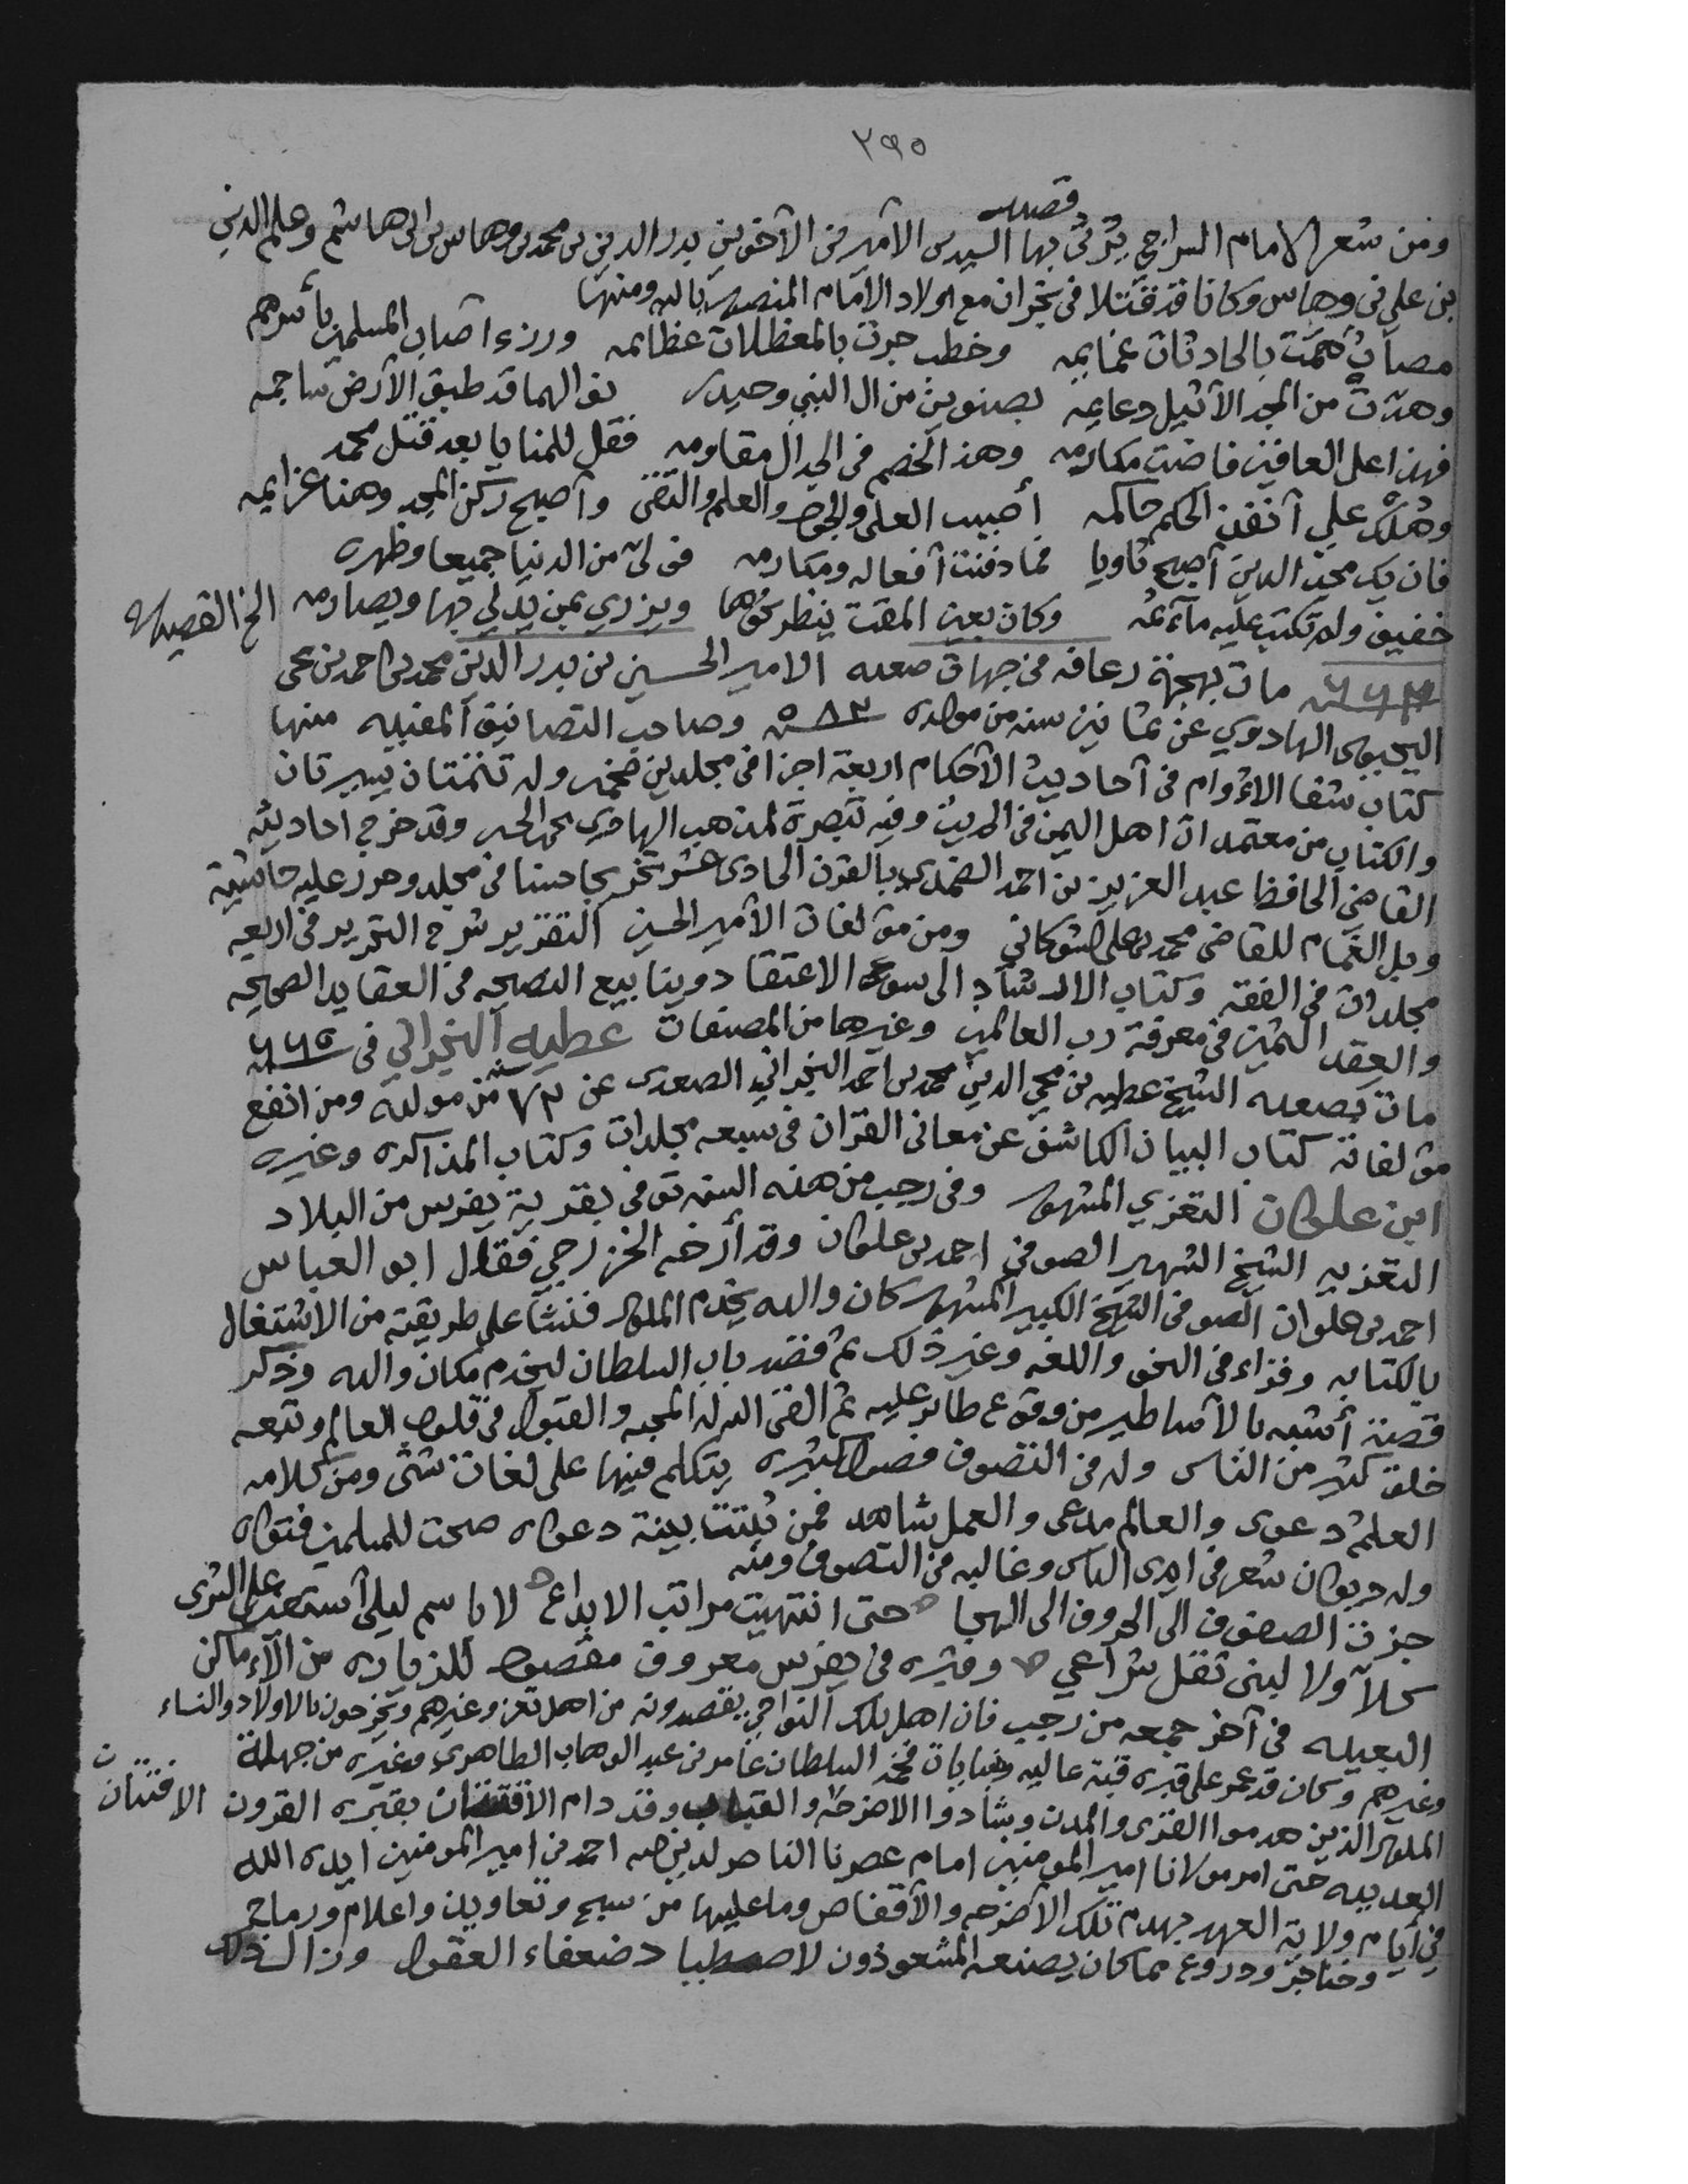 ٢٩٥
قصيدة
ومن شعر الامام السراجي يرثي بها السيدين الأميرين الأخوين بدر الدين بن محمد بن وهاس بن ابي هاشم وعلم الدين
بن علي بن وهاس وكانا قد قتلا في نجران مع اولاد الامام المنصور بالله ومنها
مصاب همت بالحادثات غمايمه وخطب جرت بالمعظلات عظائمه ورزء اصاب المسلمين بأسرهم
وهدت من المجد الأثيل دعايمه بصنوين من ال النبي وحيدر نوالهما قد طبق الأرض ساجمه
فهذا على العافين فاضت مكارمه وهذا الخصم في الجدال مقاومه فقل للمنايا بعد قتل محمد
وهلك علي أنفذ الحكم حاكمه أصيب العلى والجود والعلم والتقى وأصبح ركن المجد وهنا عزايمه
فان يك مجد الدين أصبح ثاويا فما دفنت أفعاله ومكارمه فولى من الدنيا جميعا وظهره
خفيف ولم تكتب عليه مآثمه وكان بعين المقت ينظر نحوها ويزري بمن يدلي بها ويصارمه الخ القصيدة
٦٦٢ سنة مات بهجرة رغافه من جهات صعده الامير الحسين بن بدر الدين محمد بن احمد بن يحي
اليحيوى الهادوي عن ثمانين سنه من مولده ٥٨٢ سنة وصاحب التصانيف المفيده منها
كتاب شفا الاؤام في أحاديث الأحكام اربعة اجزا في مجلدين ضخمه وله تتمتان يسيرتان
والكتاب من معتمدات اهل اليمن في الحديث وفيه تبصرة لمذهب الهادي يحي الحسين وقد خرج احاديثه
القاضي الحافظ عبد العزيز بن احمد الضمدي بالقرن الحادى عشر تخريجا حسنا في مجلد وحرر عليه حاشية
وبل الغمام للقاضي محمد بن علي الشوكاني ومن مؤلفات الأمير الحسين التقرير شرح التحرير في اربعه
مجلدات في الفقه وكتاب الارشاد الى سوى الاعتقاد وينابيع النصيحه في العقايد الصحيحه
والعقد الثمين في معرفة رب العالمين وغيرها من المصنفات عطيه النجراني في ٦٦٥ سنة
مات بصعده الشيخ عطيه بن محي الدين محمد بن احمد النجراني الصعدى عن ٦٢ سنة من مولده ومن انفع
مؤلفاته كتاب البيان الكاشف عن معاني القران في سبعه مجلدات وكتاب المذاكره وغيره
ابن علوان التعزي المشهور وفي رجب من هذه السنه توفي بقرية يفرس من البلاد
التعزيه الشيخ الشهير الصوفي احمد بن علوان وقد أرخه الخزرجي فقال ابو العباس
احمد بن علوان الصوفي الشيخ الكبير المشهور كان والده يخدم الملوك فنشأ على طريقته من الاشتغال
بالكتابه وقراء في النحو واللغه وغير ذلك ثم قصد باب السلطان ليخدم مكان والده وذكر
قصة أشبه بالأساطير من وقوع طاير عليه ثم القى الله له المحبه والقبول في قلوب العالم وتبعه
خلق كثير من الناس وله في التصوف فصول كثيره يتكلم فيها على لغات شتى ومن كلامه
العلم دعوى والعالم مدعى والعمل شاهد فمن ثبتت بينة دعواه صحت للمسلمين فتواه
وله ديوان شعر في ايدى الناس وغالبه في التصوف ومنه
جزت الصفوف الى الحروف الى الهجا حتى انتهيت مراتب الابداع لا باسم ليلى أستعين على السرى
كلا ولا لبنى تقل شراعي وقبره في يفرس معروف مقصود للزياره من الأماكن
البعيده في آخر جمعه من رجب فان اهل تلك النواحي يقصدونه من اهل تعز وغيرهم ويخرجون بالاولاد والنساء
وغيرهم وكان قد عمر على قبره قبة عاليه وبنايات فخمه السلطان عامر بن عبد الوهاب الطاهري وغيره من جهلة
الملوك الذين هدموا القرى والمدن وشادوا الاضرحه والقباب وقد دام الافتتان بقبره القرون الافتتان
العديده حتى امر مولانا امير المومنين امام عصرنا الناصر لدين الله احمد بن امير المومنين ايده الله
في أيام ولاية العهد بهدم تلك الأضرحه والأقفاص وما عليها من سبح وتعاويذ واعلام ورماح
وخناجر ودروع مما كان يصنعه المشعوذون لاصطياد ضعفاء العقول وزال بذلك